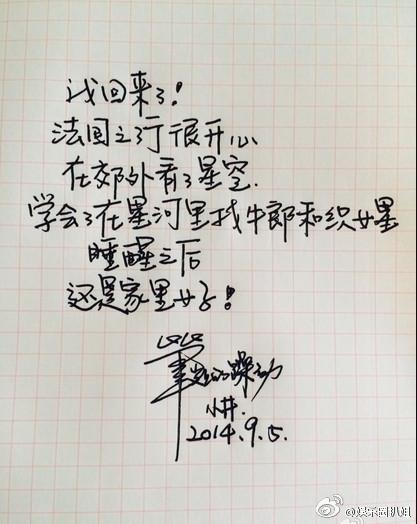 我回来了！
法国之行很开心
在郊外看了星空.
学会了在星河里找牛郎和织女星
睡醒之后
还是家里好！
LoLo
的躁动
小井.
2014.9.5.